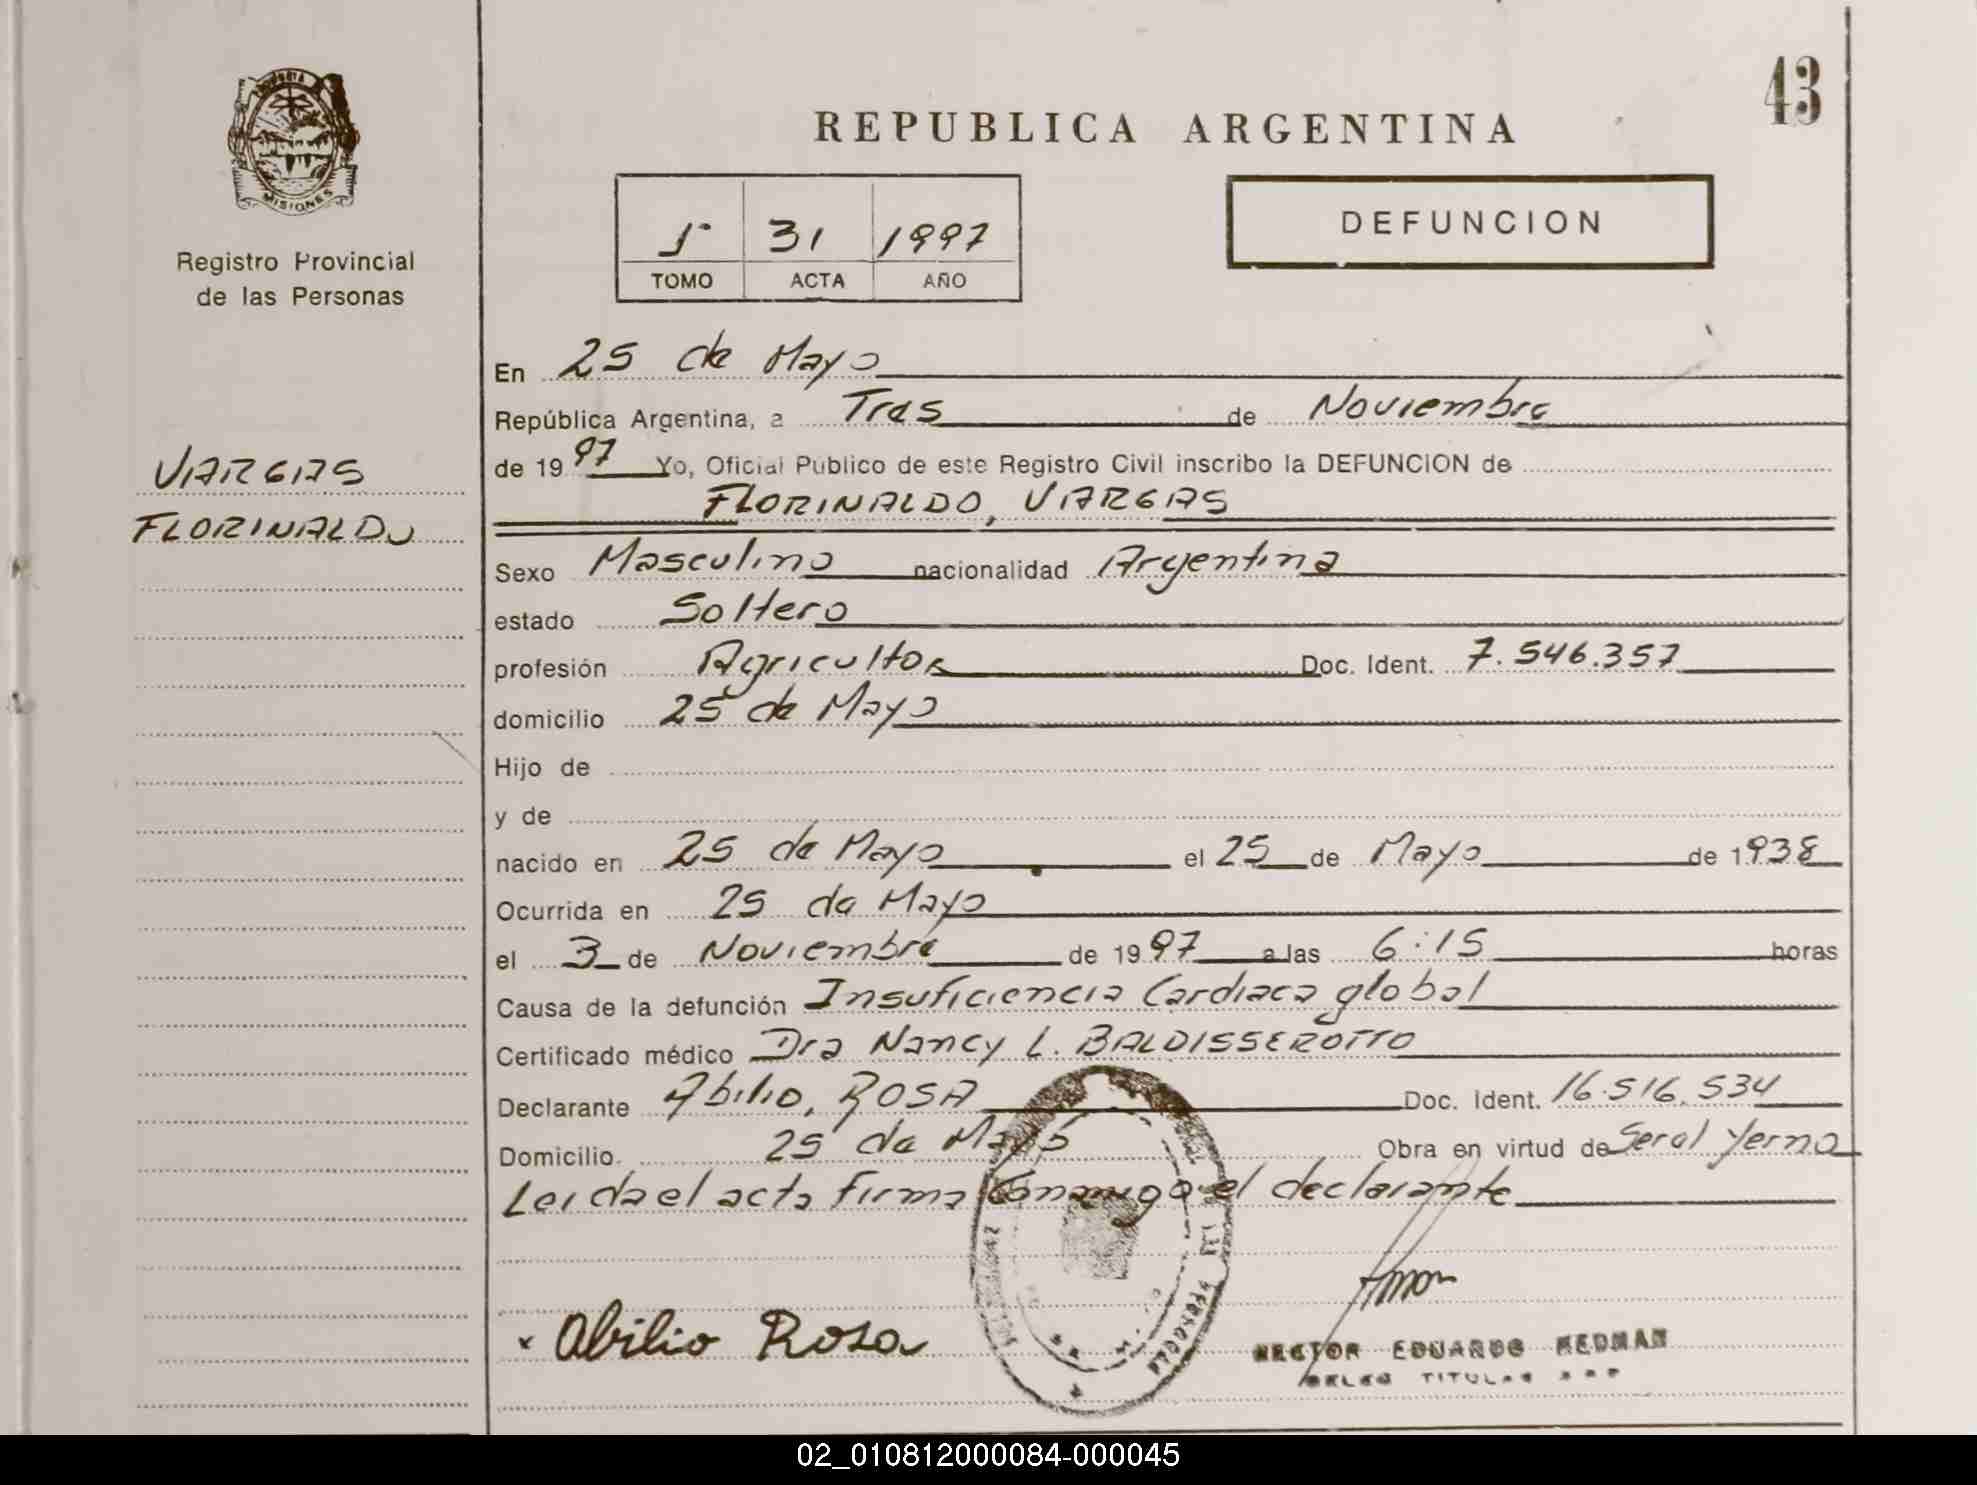 43
MISIONES
REPUBLICA ARGENTINA
Registro Provincial
de las Personas
1º 31 1997
TOMO ACTA AÑO
DEFUNCION
VARGAS
FLORINALDO
En 25 de Mayo
República Argentina, a Tres de Noviembre
de 1997 Yo, Oficial Publico de este Registro Civil inscribo la DEFUNCION de
FLORINALDO, VARGAS
Sexo Masculino nacionalidad Argentina
estado Soltero
profesión Agricultor Doc. Ident. 7.546.357
domicilio 25 de Mayo
Hijo de
y de
nacido en 25 de Mayo el 25 de Mayo de 1938
Ocurrida en 25 de Mayo
el 3 de Noviembre de 1997 a las 6:15 horas
Causa de la defunción Insuficiencia Cardiaca global
Certificado médico Dra Nancy L. BALDISSEROTTO
Declarante Abilio, ROSA Doc. Ident. 16.516.534
Domicilio 25 de Mayo Obra en virtud de Ser al yerno
Leida el acta firma conmigo el declarante
x Abilio Rosa
HECTOR EDUARDO REDMAN
TITULAR
02_010812000084-000045